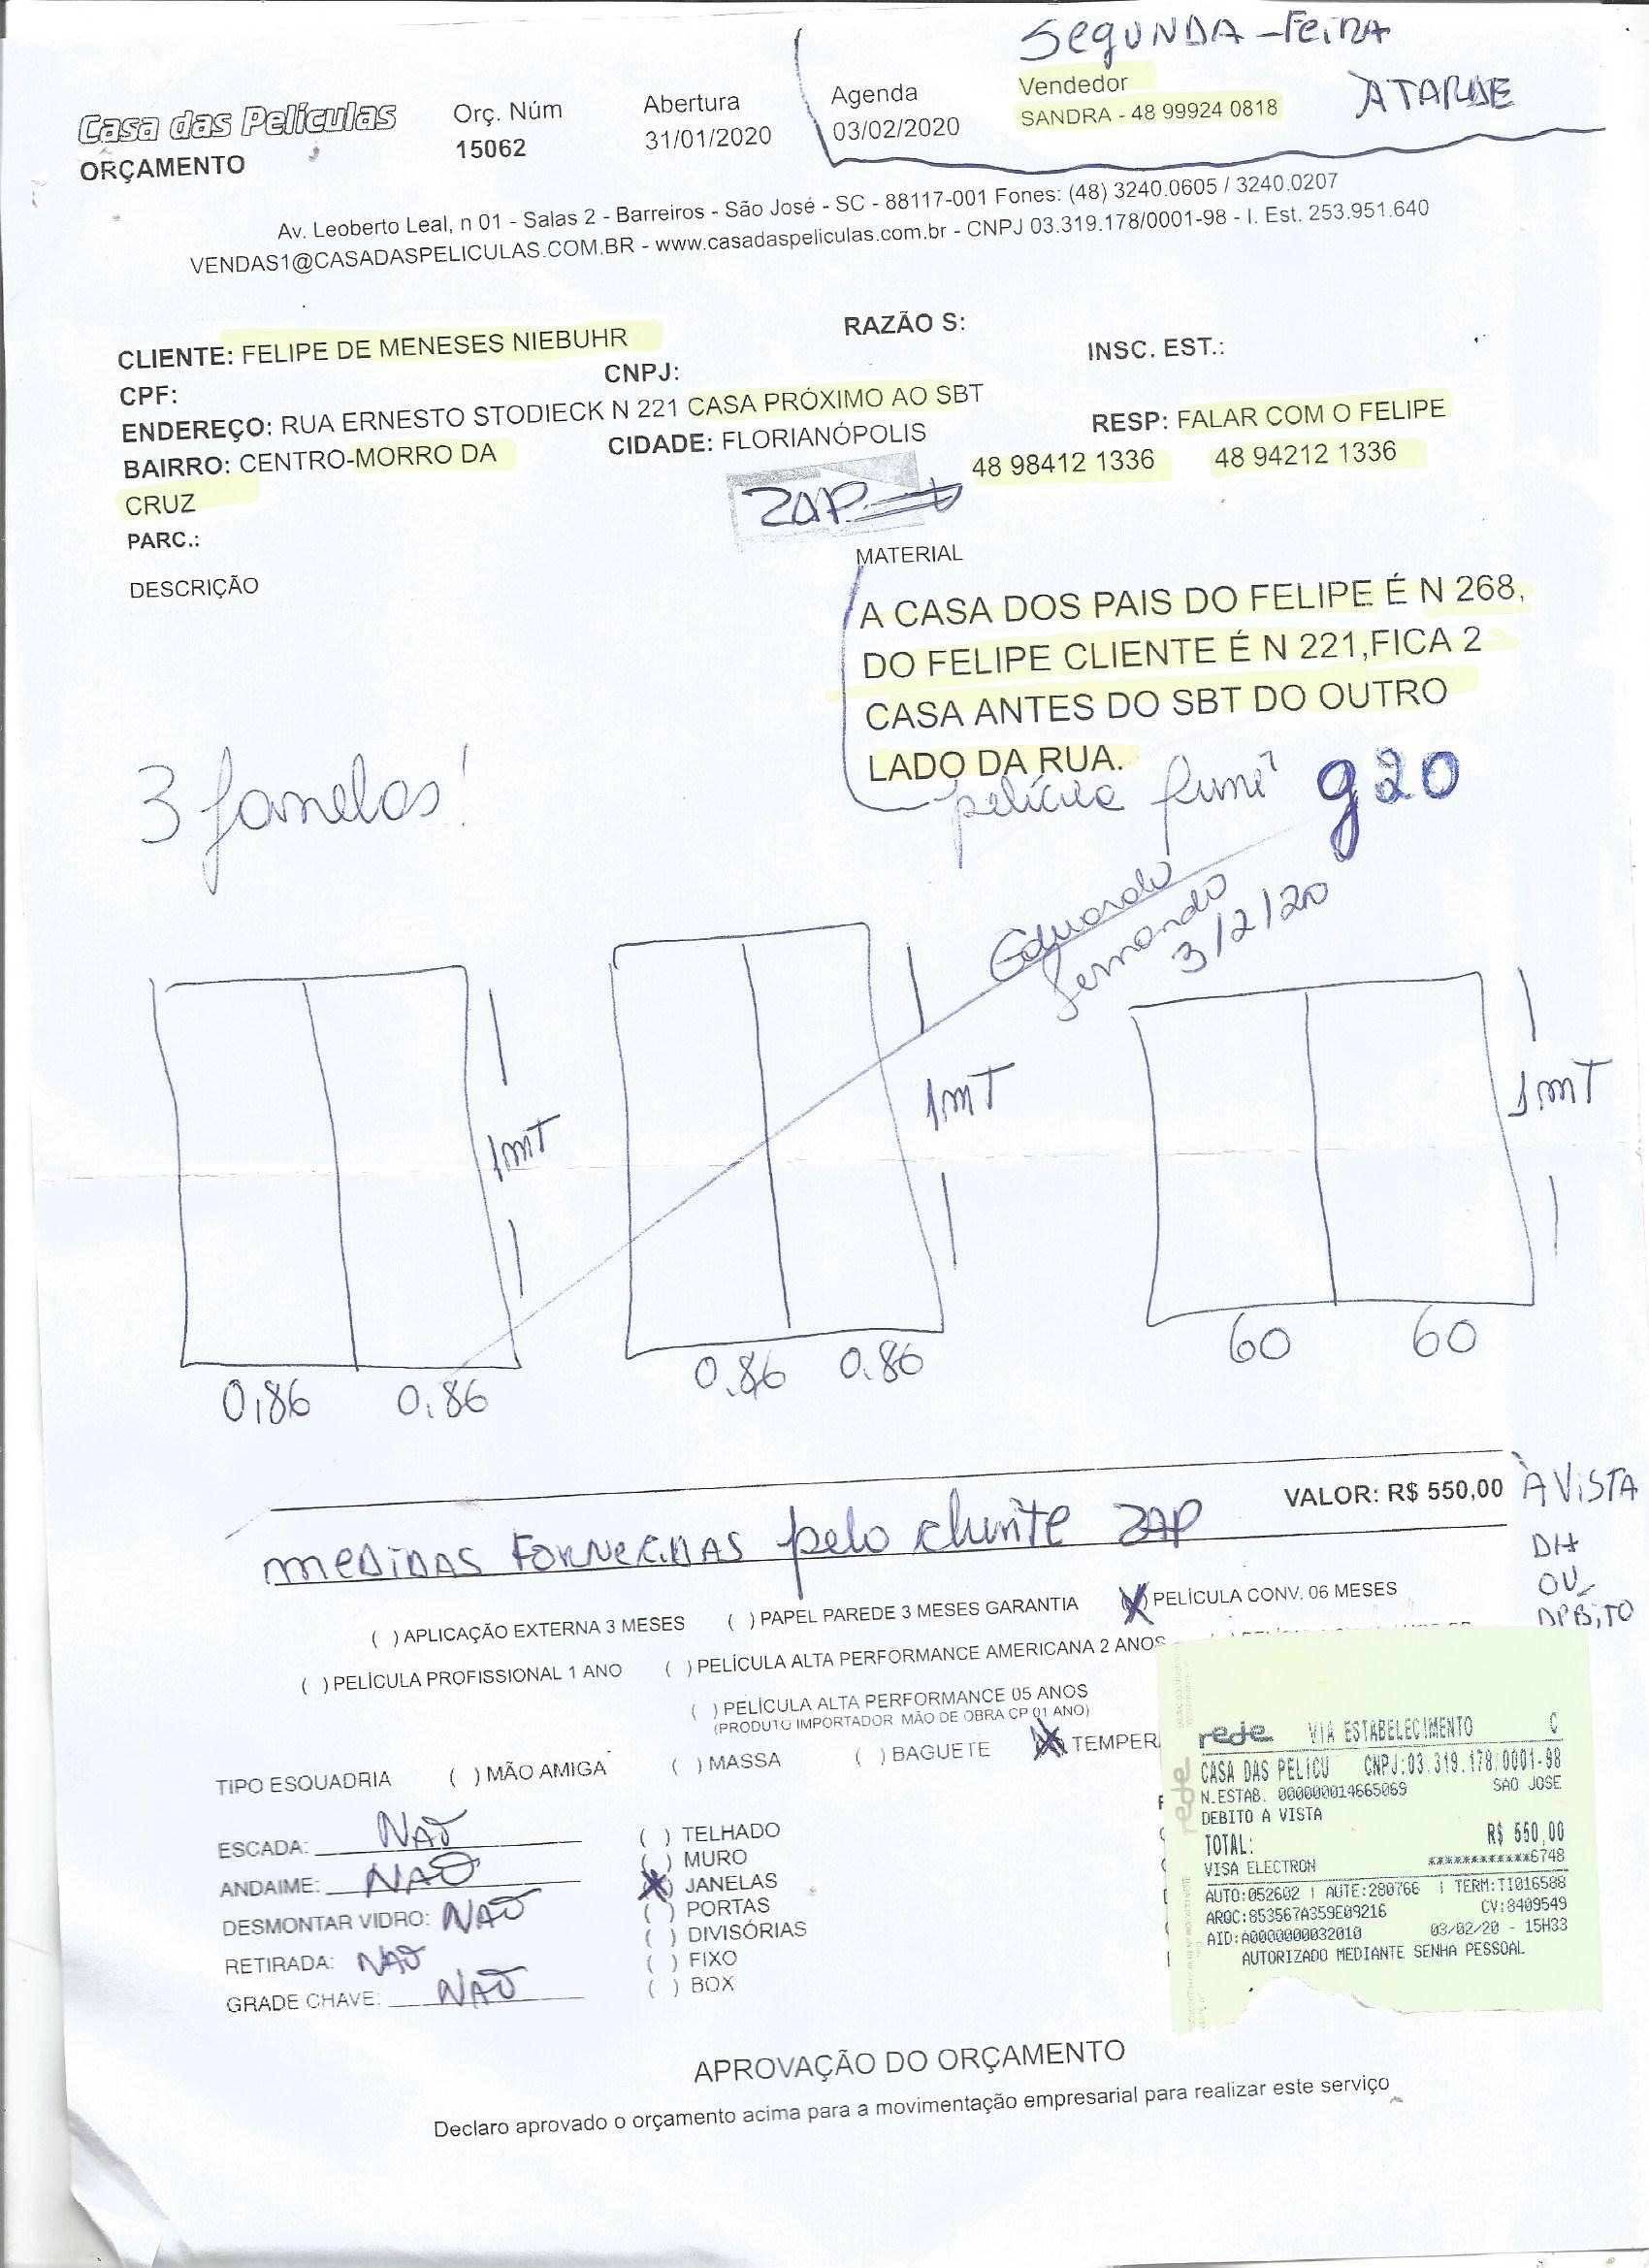 SEGUNDA-FEIRA
A TARDE
Casa das Películas
ORÇAMENTO
Orç. Núm
15062
Abertura
31/01/2020
Agenda
03/02/2020
Vendedor
SANDRA - 48 99924 0818
Av. Leoberto Leal, n 01 - Salas 2 - Barreiros - São José - SC - 88117-001 Fones: (48) 3240.0605 / 3240.0207
VENDAS1@CASADASPELICULAS.COM.BR - www.casadaspeliculas.com.br - CNPJ 03.319.178/0001-98 - I. Est. 253.951.640
CLIENTE: FELIPE DE MENESES NIEBUHR
RAZÃO S:
CPF:
CNPJ:
INSC. EST.:
ENDEREÇO: RUA ERNESTO STODIECK N 221 CASA PRÓXIMO AO SBT
BAIRRO: CENTRO-MORRO DA
CRUZ
CIDADE: FLORIANÓPOLIS
RESP: FALAR COM O FELIPE
48 98412 1336
48 94212 1336
ZAP
PARC.:
DESCRIÇÃO
MATERIAL
A CASA DOS PAIS DO FELIPE É N 268,
DO FELIPE CLIENTE É N 221,FICA 2
CASA ANTES DO SBT DO OUTRO
LADO DA RUA.
película fumê g20
3 janelas!
Eduardo
Fernando
3/2/20
1mT
1mT
1mT
0,86 0,86
0,86 0,86
60 60
VALOR: R$ 550,00 À VISTA
DH
OU
DÉBITO
MEDIDAS FORNECIDAS pelo cliente ZAP
( ) APLICAÇÃO EXTERNA 3 MESES
( ) PAPEL PAREDE 3 MESES GARANTIA
(X) PELÍCULA CONV. 06 MESES
( ) PELÍCULA PROFISSIONAL 1 ANO
( ) PELÍCULA ALTA PERFORMANCE AMERICANA 2 ANOS
( ) PELÍCULA ALTA PERFORMANCE 05 ANOS
(PRODUTO IMPORTADOR. MÃO DE OBRA CP 01 ANO)
TIPO ESQUADRIA
( ) MÃO AMIGA
( ) MASSA
( ) BAGUETE
(X) TEMPER
ESCADA: NÃO
ANDAIME: NÃO
DESMONTAR VIDRO: NÃO
RETIRADA: NÃO
GRADE CHAVE: NÃO
( ) TELHADO
( ) MURO
(X) JANELAS
( ) PORTAS
( ) DIVISÓRIAS
( ) FIXO
( ) BOX
rede VIA ESTABELECIMENTO C
CASA DAS PELICU CNPJ:03.319.178/0001-98
N.ESTAB. 000000014665069 SAO JOSE
DEBITO A VISTA
TOTAL: R$ 550,00
VISA ELECTRON ************6748
AUTO:052602 | AUTE:280766 | TERM:TI016588
ARQC:853567A359E09216 CV:8409549
AID:A0000000032010 03/02/20 - 15H33
AUTORIZADO MEDIANTE SENHA PESSOAL
rede
APROVAÇÃO DO ORÇAMENTO
Declaro aprovado o orçamento acima para a movimentação empresarial para realizar este serviço